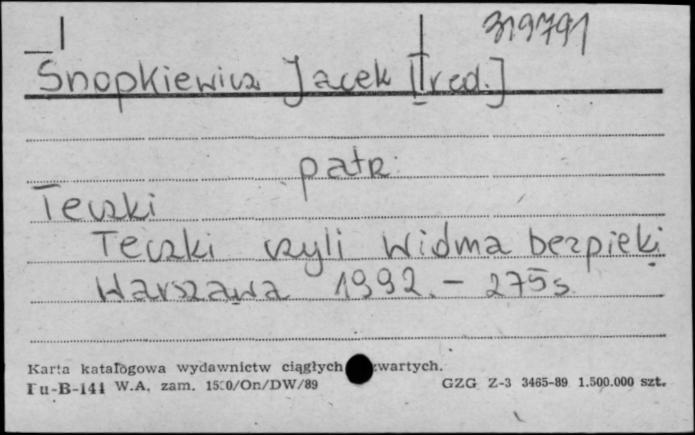 319791
Snopkiewicz Jacek [red.]
patrz
Teczki
Teczki czyli widma bezpieki
Warszawa 1992. – 275 s
Karta katalogowa wydawnictw ciągłych wartych.
Pu-B-141 W.A. zam. /On/DW/89 GZG Z-3 3465-89 1.500.000 szt.